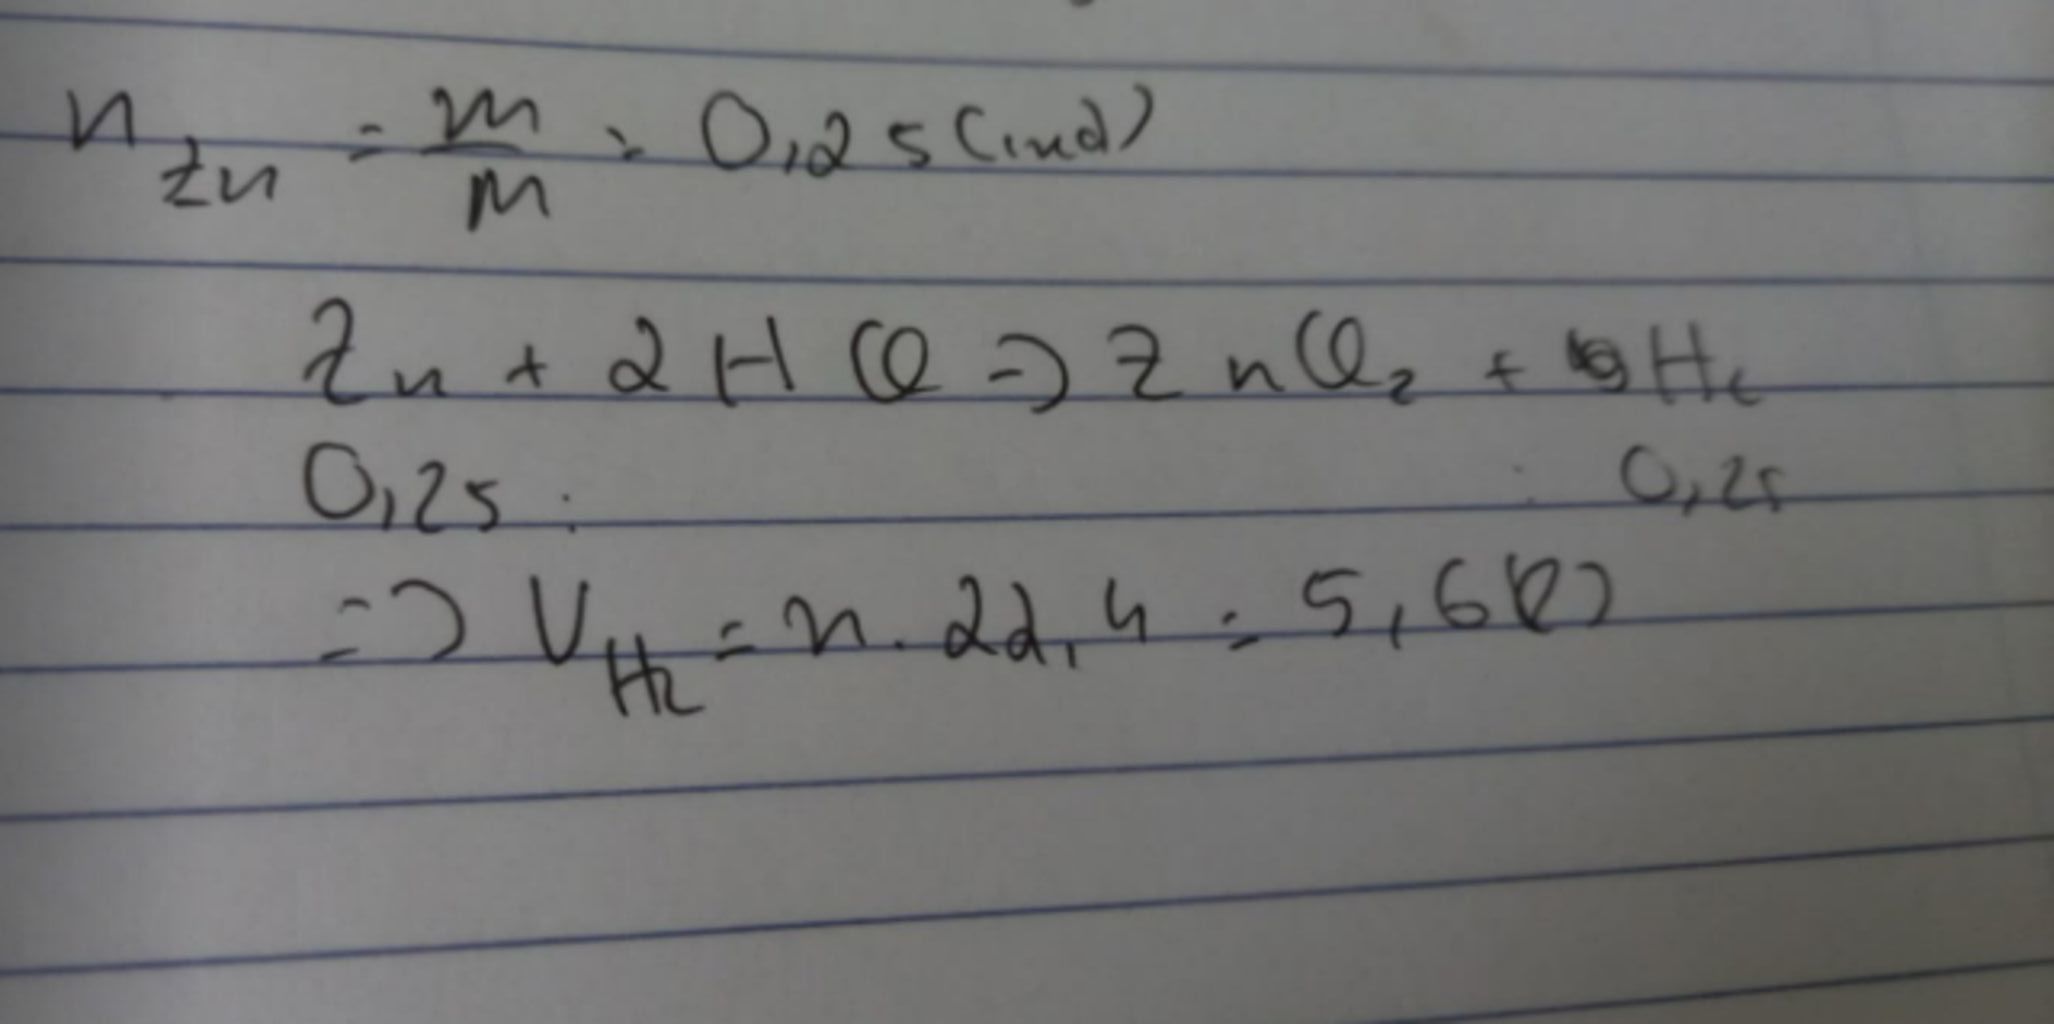 n Zn = m/M = 0,25 (mol)
Zn + 2HCl => ZnCl2 + H2
0,25 : 0,25
=> VH2 = n. 22,4 = 5,6(l)